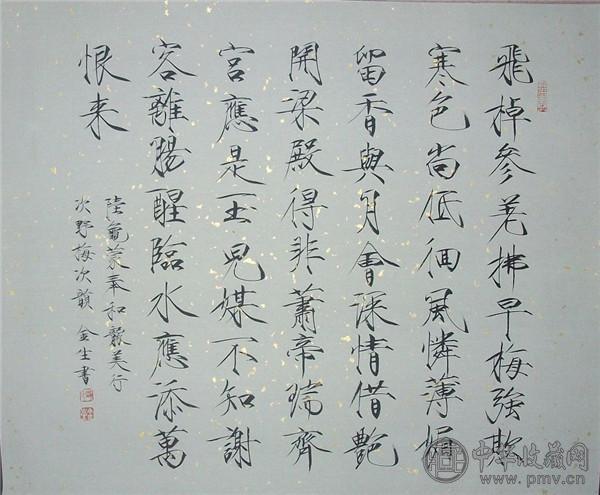 飛棹參差拂早梅強欺
寒色尚低徊風憐薄媚
留香與月會深情借艷
開梁殿得非蕭帝瑞齊
宮應是玉兒媒不知謝
容離腸醒臨水應添萬
恨来
陸龜蒙奉和襲美行
次野梅次韻 金生書
中华收藏网
www.pmv.cn